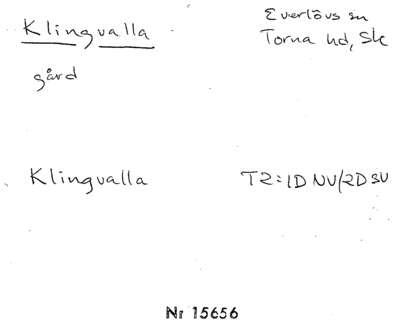 Klingvalla
Everlövs sn
Torna hd, Sk
gård
Klingvalla
T2:1D NV/2D SV
Nr 15656